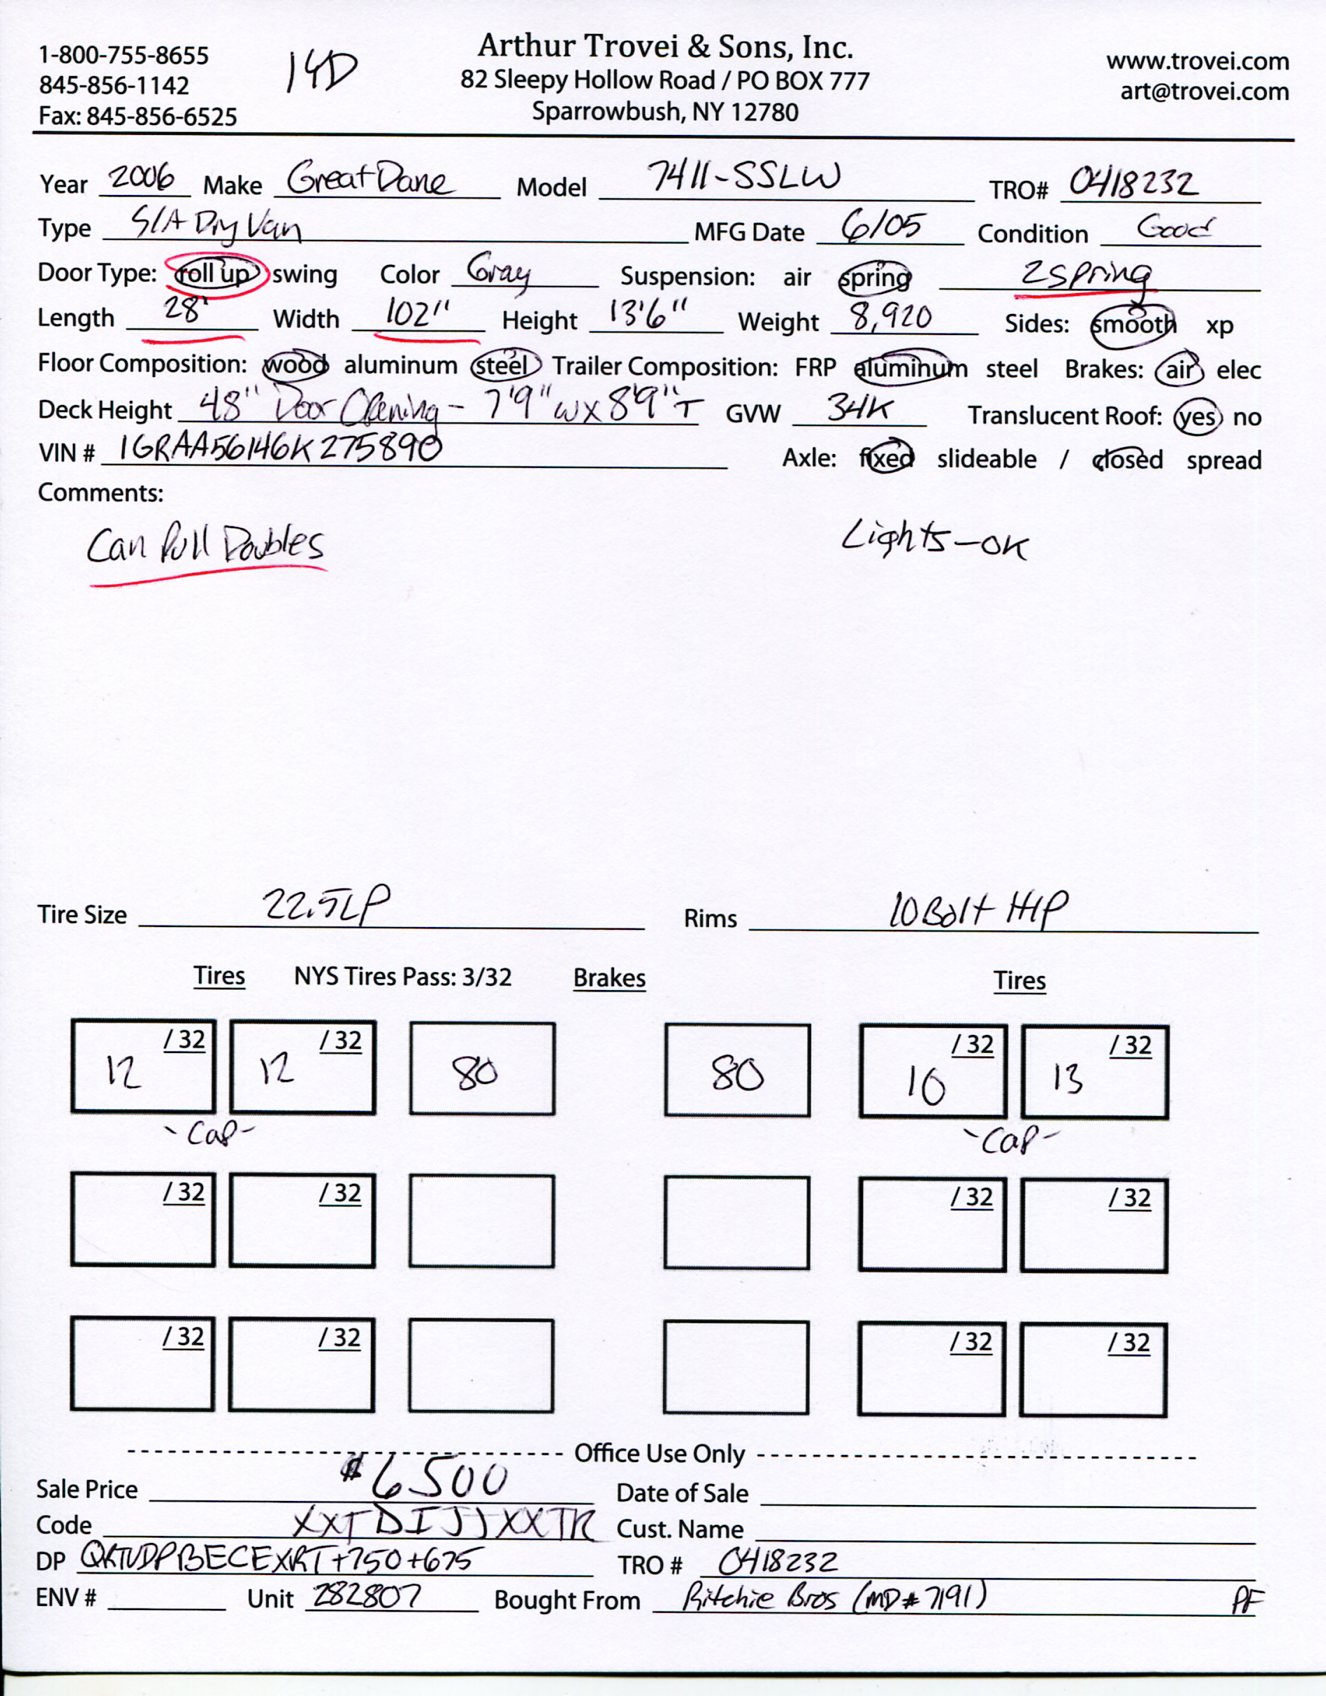 1-800-755-8655
845-856-1142
Fax: 845-856-6525
14D
Arthur Trovei & Sons, Inc.
82 Sleepy Hollow Road / PO BOX 777
Sparrowbush, NY 12780
www.trovei.com
art@trovei.com
Year 2006 Make Great Dane Model 7411-SSLW TRO# 0418232
Type S/A Dry Van MFG Date 6/05 Condition Good
Door Type: roll up swing Color Gray Suspension: air spring 2 spring
Length 28' Width 102" Height 13'6" Weight 8,920 Sides: smooth xp
Floor Composition: wood aluminum steel Trailer Composition: FRP aluminum steel Brakes: air elec
Deck Height 48" Door Opening - 7'9"W x 8'9"T GVW 34K Translucent Roof: yes no
VIN # 1GRAA56146K275890 Axle: fixed slideable / closed spread
Comments:
Can Pull Doubles Lights-OK
Tire Size 22.5LP Rims 10 Bolt HP
Tires NYS Tires Pass: 3/32 Brakes Tires
12 /32 12 /32 80 80 10 /32 13 /32
-Cap- -Cap-
/32 /32 /32 /32
/32 /32 /32 /32
Office Use Only
Sale Price $6500 Date of Sale
Code XXTDIJJXXTR Cust. Name
DP +750+675 TRO # 0418232
ENV # Unit 282807 Bought From Ritchie Bros (MD#7191) PF